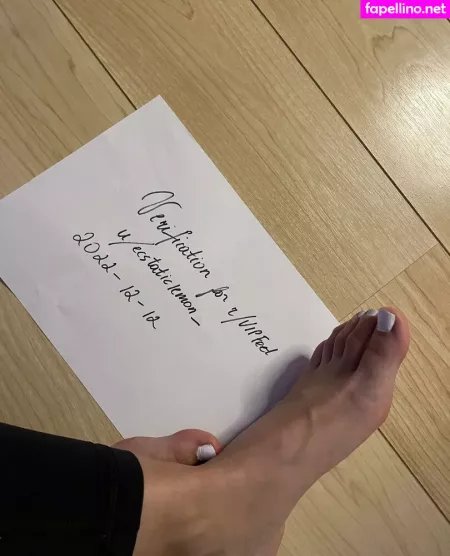 fapellino.net
Verification for r/VIPFeet
u/ecstaticlemon_
2022-12-12